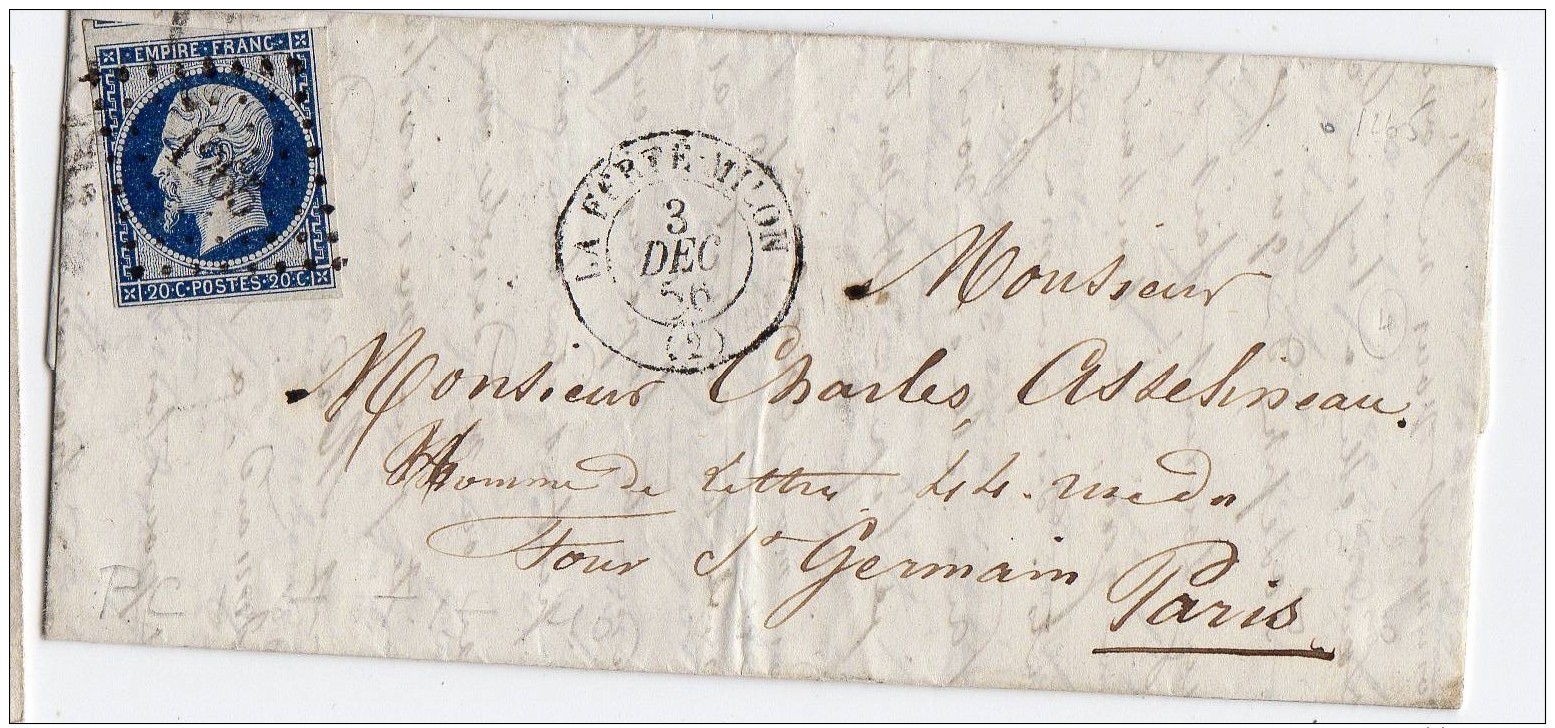 EMPIRE · FRANC ·
20 · C · POSTES · 20 · C ·
LA FERTÉ-MILON
3
DEC
56
(2)
Monsieur
Monsieur Charles Asselineau.
Homme de Lettres 44. rue du
Four St Germain Paris
P/C